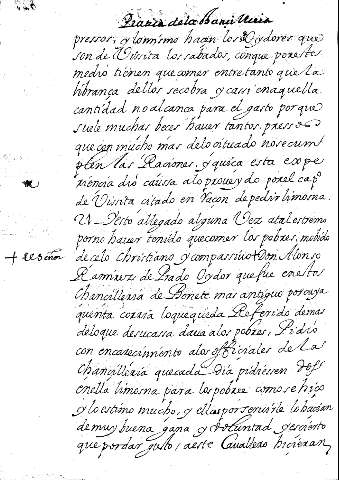 Practica de la Chancilleria
pressos, y lo mismo hacen los Oydores que
son de Vissita los sabados, con que por este
medio tienen que comer entre tanto que la
libranca dellos se cobra y cassi en aquella
cantidad no alcanca para el gasto porque
suele muchas beces haver tantos pressos
que con mucho mas de lo situado no se cum-
plen las Raciones, y quica esta expe-
riencia dió caussa al proueydo por el cap.º
de Vissita citado en racon de pedir limosna.
Y esto a llegado alguna Vez a tal estremo
por no haver tenido que comer los pobres, mobido
+ el Señor
de celo christiano y compassivo + Don Alonso
Ramirez de Prado Oydor que fue en esta
Chancilleria de Bonete mas antiguo por cuya
quinta corria lo que queda Referido demas
de lo que de su cassa dava a los pobres, Pidió
con encarecimiento a los officiales de la
Chancilleria que cada dia pidiessen dos
en ella limosna para los pobres como se hiço
y lo estimo mucho, y ellos por servirle lo hacian
de muy buena gana y voluntad y es cierto
que por dar gusto a este Cavallero hicieran